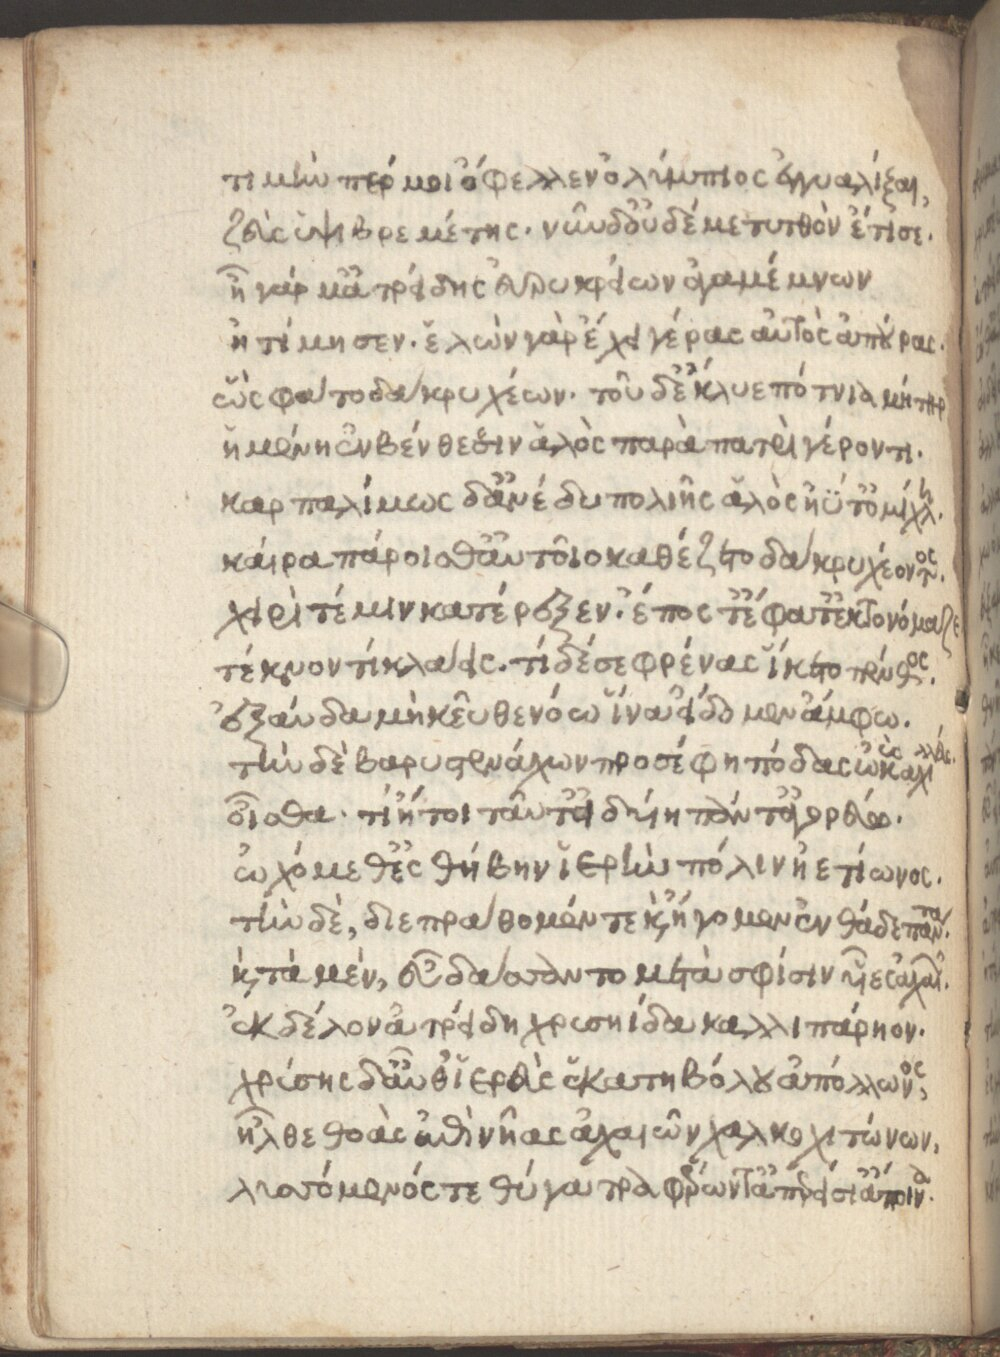 τιμὴν πέρ μοι ὄφελλεν ὀλύμπιος ἐγγυαλίξαι,
ζεὺς ὑψιβρεμέτης. νῦν δ' οὐδέ με τυτθὸν ἔτισε.
ἦ γάρ μ' ἀτρείδης εὐρυκρείων ἀγαμέμνων
ἠτίμησεν. ἑλὼν γὰρ ἔχει γέρας αὐτὸς ἀπούρας.
ὣς φάτο δακρυχέων. τοῦ δ' ἔκλυε πότνια μήτηρ
ἡμένη ἐν βένθεσιν ἁλὸς παρὰ πατρὶ γέροντι.
καρπαλίμως δ' ἀνέδυ πολιῆς ἁλὸς ἠΰτ' ὀμίχλη.
καί ῥα πάροιθ' αὐτοῖο καθέζετο δακρυχέοντος.
χειρί τέ μιν κατέρεξεν. ἔπος τ' ἔφατ' ἔκ τ' ὀνόμαζε
τέκνον τί κλαίεις. τί δέ σε φρένας ἵκετο πένθος.
ἐξαύδα μὴ κεῦθε νόω ἵνα εἴδομεν ἄμφω.
τὴν δὲ βαρυστενάχων προσέφη πόδας ὠκὺς ἀχιλλεύς.
οἶσθα. τί ἤ τοι ταῦτ' εἰδυίη πάντ' ἀγορεύω.
ὠχόμεθ' ἐς θήβην ἱερὴν πόλιν ἠετίωνος.
τὴν δὲ, διεπράθομέν τε καὶ ἤγομεν ἐνθάδε πάντα.
καὶ τὰ μέν, εὖ δάσσαντο μετὰ σφίσιν υἷες ἀχαιῶν.
ἐκ δ' ἕλον ἀτρείδη χρυσηίδα καλλιπάρηον.
χρύσης δ' αὖθ' ἱερεὺς ἑκατηβόλου ἀπόλλωνος,
ἦλθε θοὰς ἐπὶ νῆας ἀχαιῶν χαλκοχιτώνων,
λυσόμενός τε θύγατρα φέρων τ' ἀπερείσι' ἄποινα.